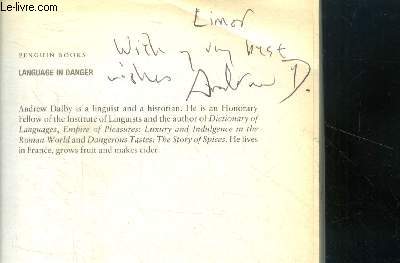 Elinor
PENGUIN BOOKS
With my very best
LANGUAGE IN DANGER
wishes Andrew D.
Andrew Dalby is a linguist and a historian. He is an Honorary
Fellow of the Institute of Linguists and the author of Dictionary of
Languages, Empire of Pleasures: Luxury and Indulgence in the
Roman World and Dangerous Tastes: The Story of Spices. He lives
in France, grows fruit and makes cider.
La Bourse